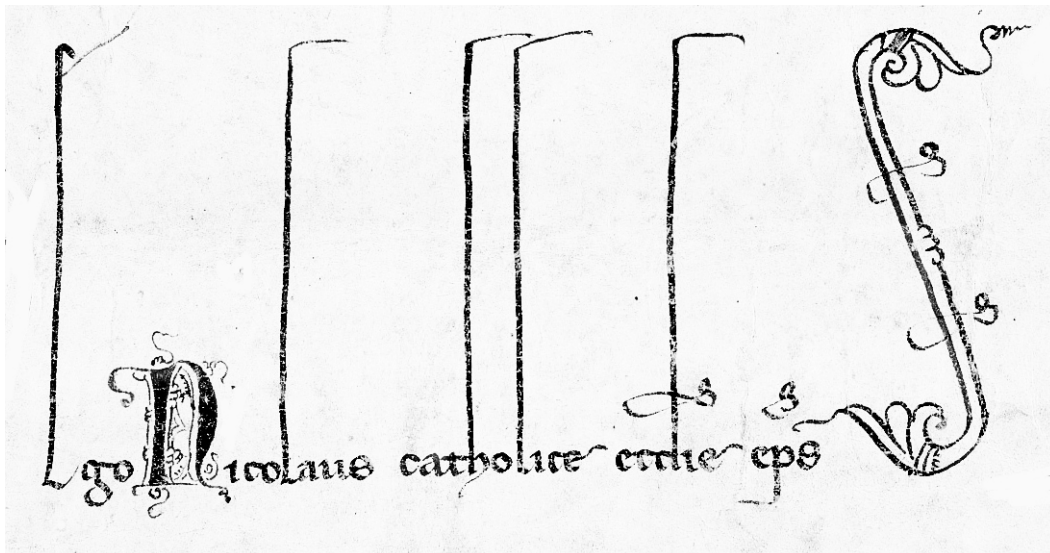 Ego Nicolaus catholice ecclie eps